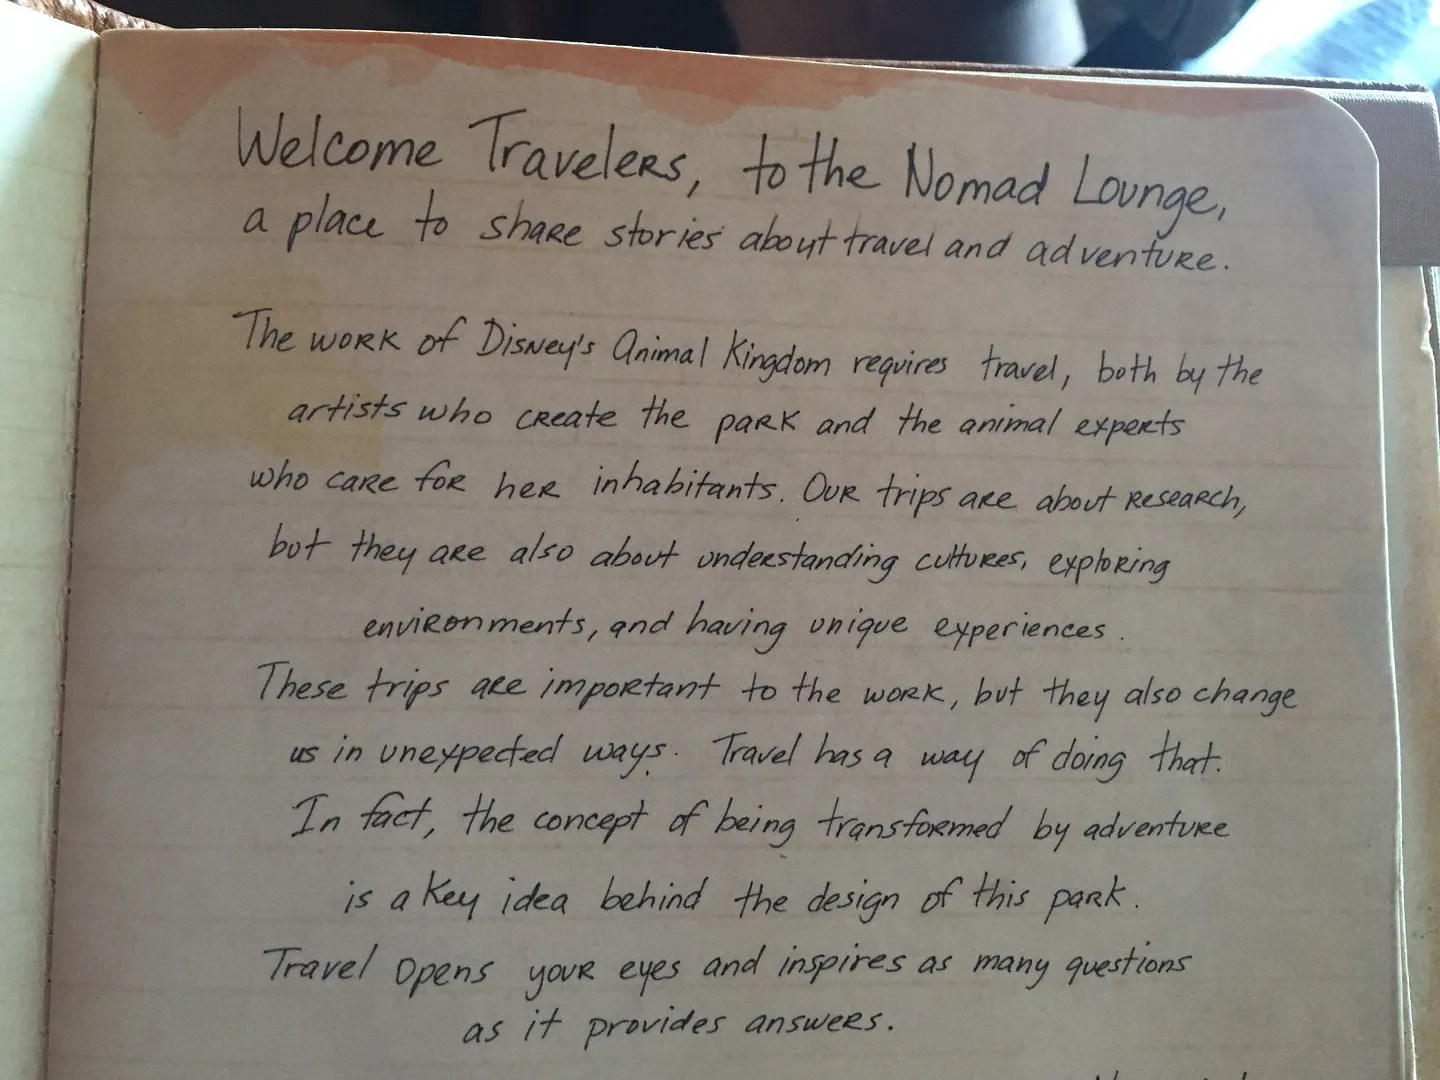 Welcome Travelers, to the Nomad Lounge,
a place to share stories about travel and adventure.
The work of Disney's Animal Kingdom requires travel, both by the
artists who create the park and the animal experts
who care for her inhabitants. Our trips are about research,
but they are also about understanding cultures, exploring
environments, and having unique experiences.
These trips are important to the work, but they also change
us in unexpected ways. Travel has a way of doing that.
In fact, the concept of being transformed by adventure
is a key idea behind the design of this park.
Travel opens your eyes and inspires as many questions
as it provides answers.